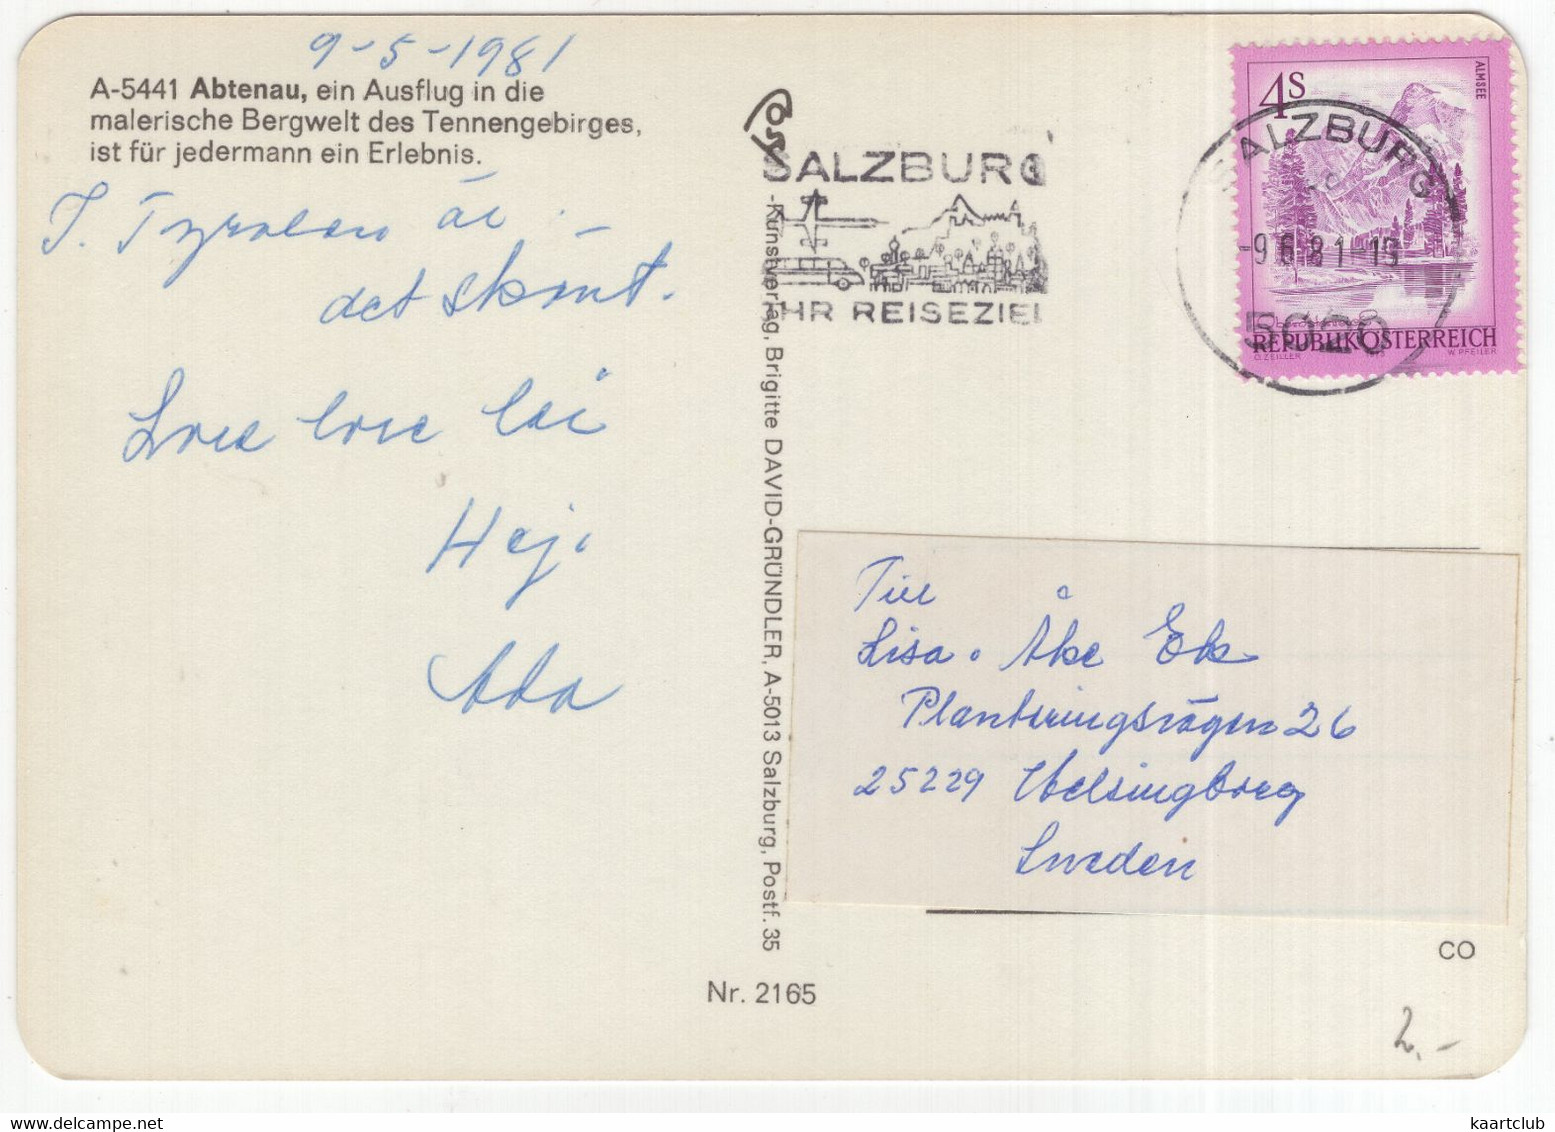 9-5-1981
A-5441 Abtenau, ein Ausflug in die
malerische Bergwelt des Tennengebirges,
ist für jedermann ein Erlebnis.
I. Tyrolen är
det skönt.
Hej.
Ada
SALZBURG
IHR REISEZIEL
-Kunstverlag, Brigitte DAVID-GRÜNDLER, A-5013 Salzburg, Postf. 35
Nr. 2165
4S
ALMSEE
REPUBLIK ÖSTERREICH
O. ZEILLER W. PFEILER
SALZBURG
-9.6.81-19
5020
Till
Lisa o Åke Ek
Planteringsvägen 26
25229 Helsingborg
Sweden
CO
2.-
kaartclub